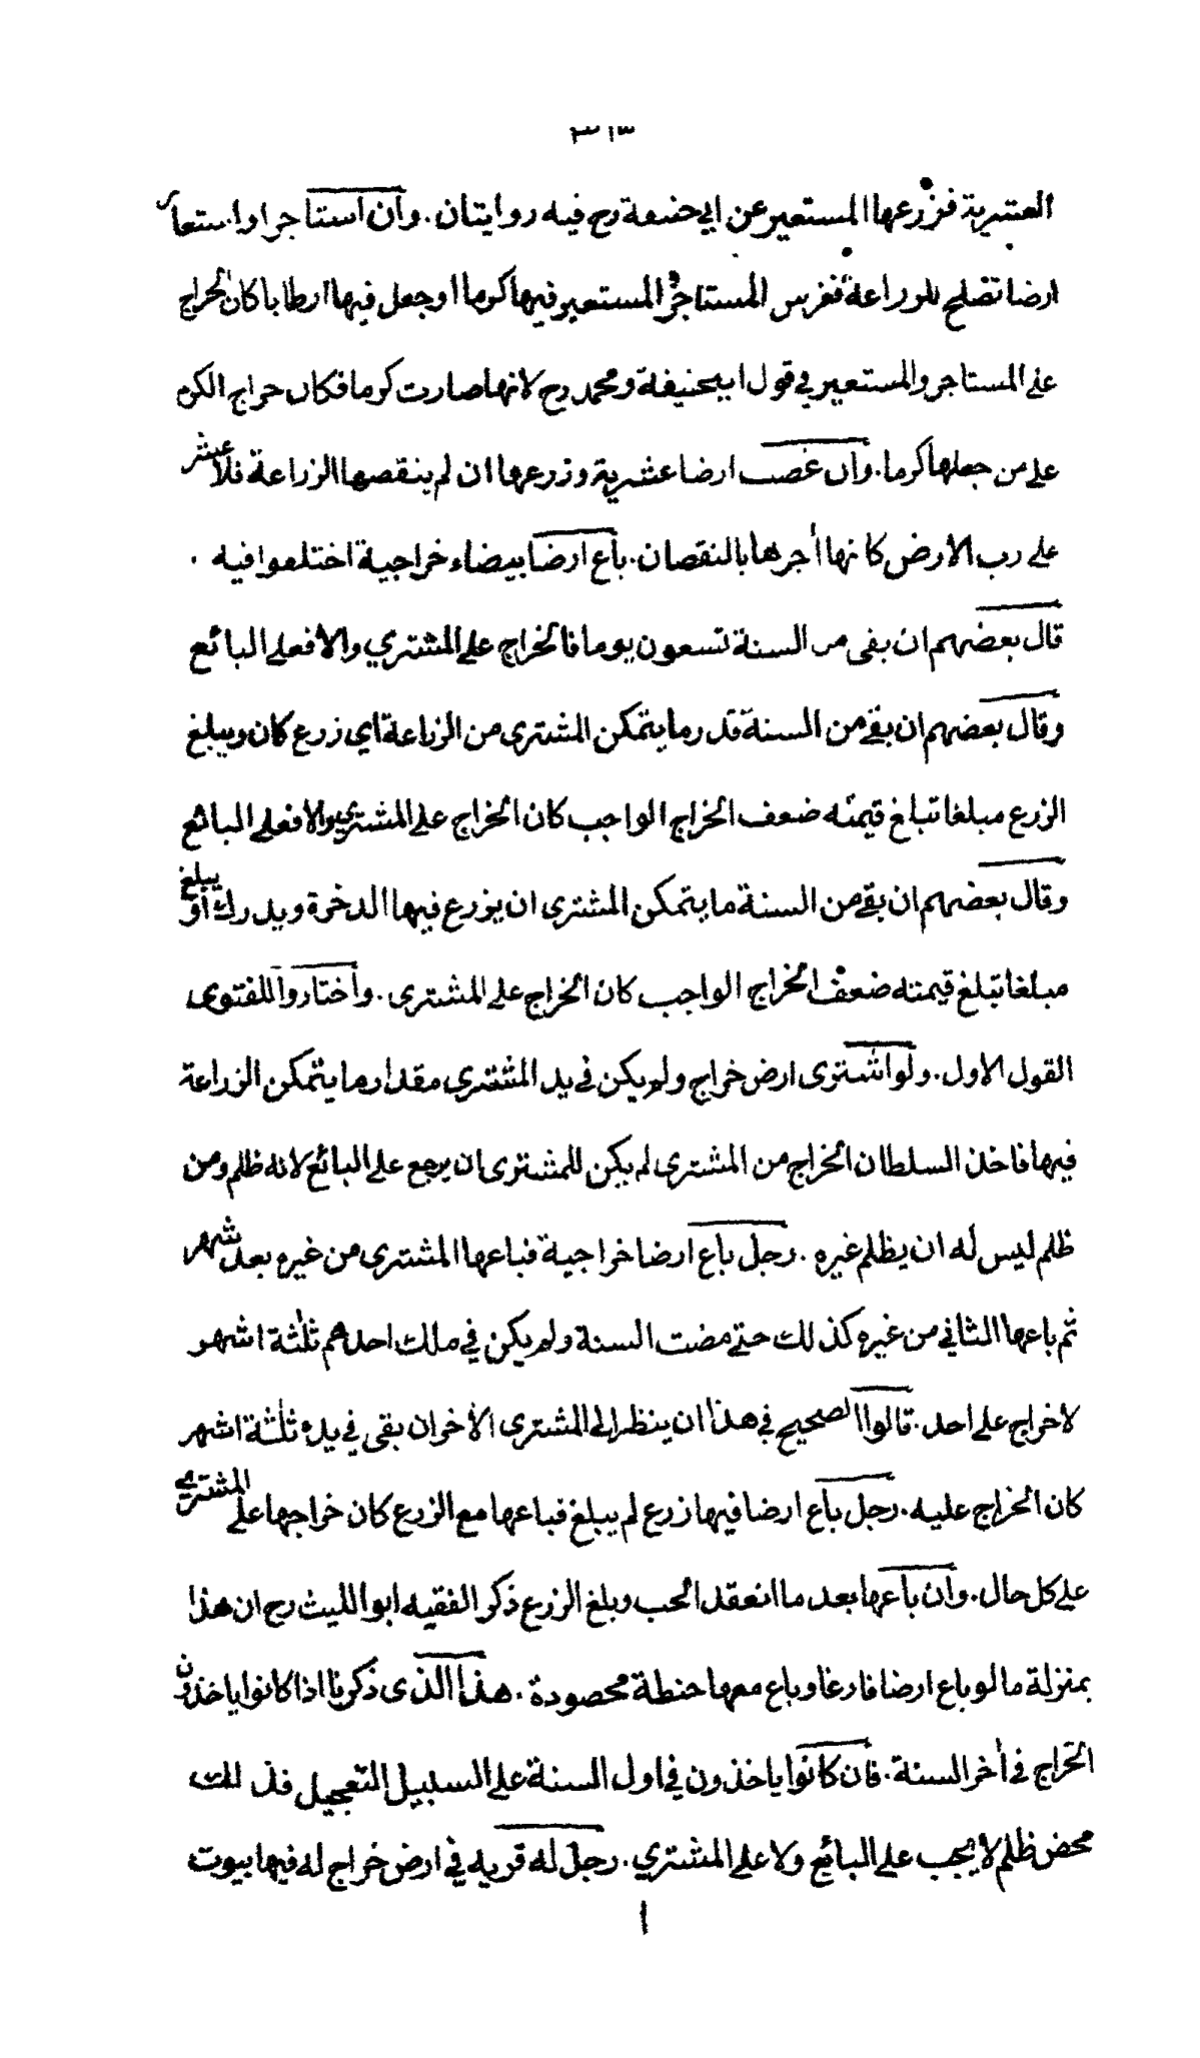 ٣١٣
العشرية فزرعها المستعير عن ابي حنيفة رح فيه روايتان . وان استاجر او استعار
ارضا تصلح للزراعة فغرس المستاجر او المستعير فيها كرما او جعل فيها ارطابا كان الخراج
على المستاجر والمستعير في قول ابيحنيفة ومحمد رح لانها صارت كرما فكان خراج الكرم
على من جعلها كرما . وان غصب ارضا عشرية وزرعها ان لم ينقصها الزراعة فلا عشر
على رب الارض كانها أجرها بالنقصان . باع ارضا بيضاء خراجية اختلفوا فيه .
قال بعضهم ان بقى من السنة تسعون يوما فالخراج على المشتري والا فعلى البائع
وقال بعضهم ان بقي من السنة قدر ما يتمكن المشترى من الزراعة اى زرع كان ويبلغ
الزرع مبلغا تبلغ قيمته ضعف الخراج الواجب كان الخراج على المشترى والا فعلى البائع
وقال بعضهم ان بقي من السنة ما يتمكن المشترى ان يزرع فيها الدخرة ويدرك او يبلغ
مبلغا تبلغ قيمته ضعف الخراج الواجب كان الخراج على المشترى . واختاروا للفتوى
القول الاول . ولو اشترى ارض خراج ولم يكن في يد المشترى مقدار ما يتمكن الزراعة
فيها فاخذ السلطان الخراج من المشترى لم يكن للمشترى ان يرجع على البائع لانه ظلم ومن
ظلم ليس له ان يظلم غيره . رجل باع ارضا خراجية فباعها المشترى من غيره بعد شهر
ثم باعها الثاني من غيره كذلك حتى مضت السنة ولم يكن في ملك احدهم ثلثة اشهر
لاخراج على احد . قالوا الصحيح في هذا ان ينظر الى المشترى الأخر ان بقى في يده ثلثة اشهر
كان الخراج عليه . رجل باع ارضا فيها زرع لم يبلغ فباعها مع الزرع كان خراجها على المشتري
على كل حال . وان باعها بعد ما انعقد الحب وبلغ الزرع ذكر الفقيه ابو الليث رح ان هذا
بمنزلة ما لو باع ارضا فارغا وباع معها حنطة محصودة . هذا الذى ذكرنا اذا كانوا ياخذون
الخراج في أخر السنة . فان كانوا ياخذون في اول السنة على السبيل التعجيل فذلك
محض ظلم لا يجب على البائع ولا على المشتري . رجل له قريه في ارض خراج له فيها بيوت
ا